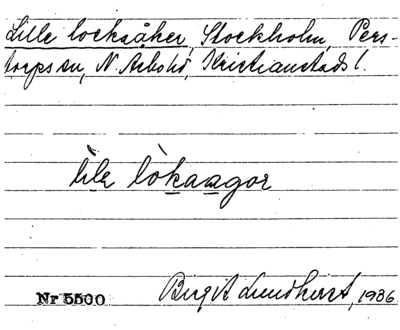 Lille lockaåker, Stockholm, Pers-
torps sn, N. Åsbohd, Kristianstads l.
lìlẹ lòkaagor
Nr 5500 Birgit Lundkvist, 1936.